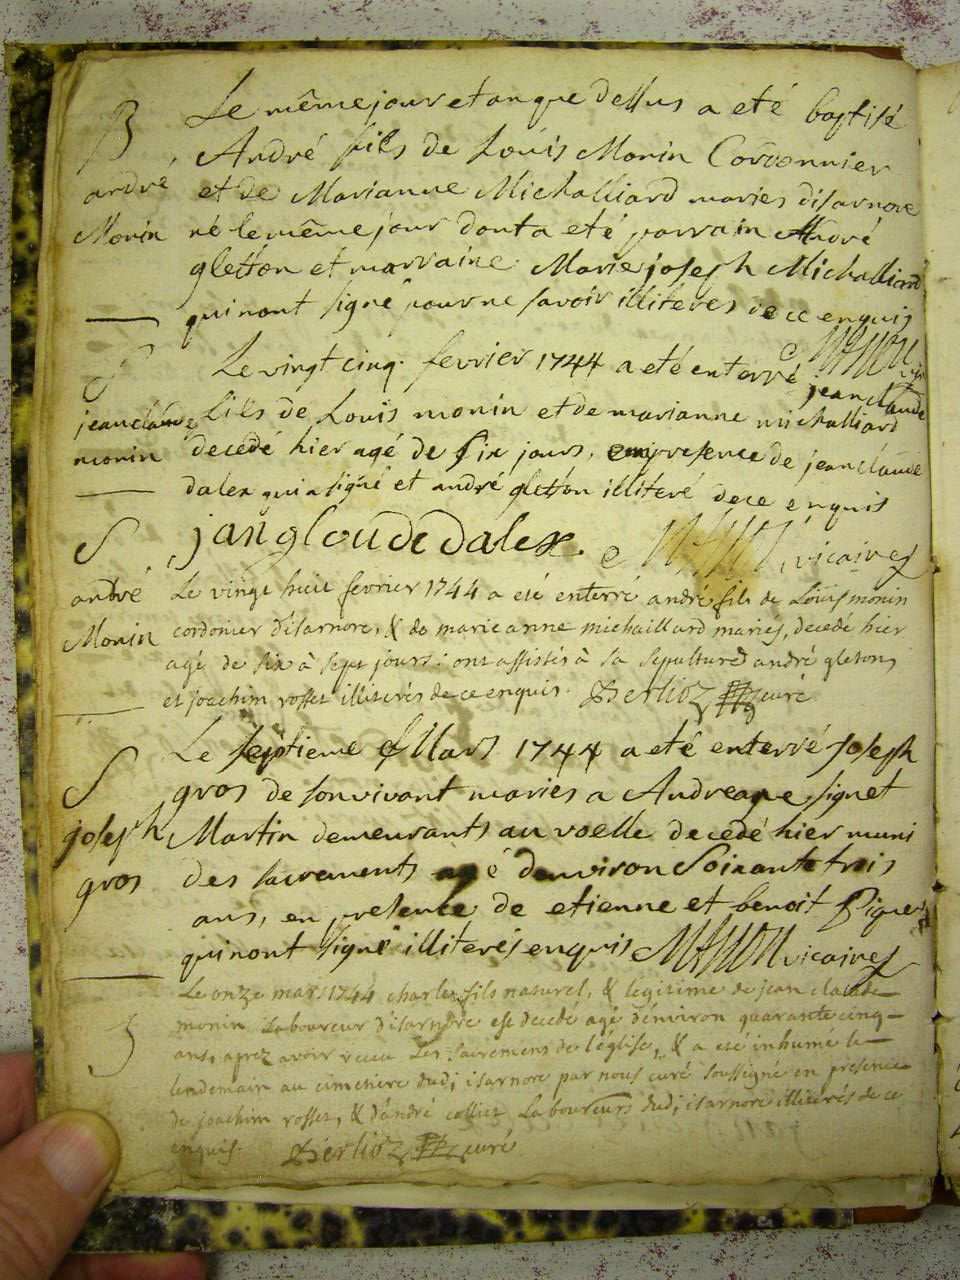 B
andré
Monin
Le même jour et an que dessus a eté baptisé
André fils de Loüis Monin Cordonnier
et de Marianne Michalliard maries disarnore
né le même jour dont a eté parrain André
gletton et marraine Marie joseph Michalliard
qui nont signé pour ne savoir illiteres de ce enquis
S
jean claude
monin
Le vingt cinq fevrier 1744 a eté enterré jean claude
fils de Louis monin et de marianne michalliard
decedé hier agé de six jours, en presence de jean claude
dalex qui a signé et andré gletton illiteré de ce enquis
jan gloude dalex. vicaire
S
andré
Monin
Le vingt huit fevrier 1744 a eté enterré andré fils de Loüis monin
cordonier d'isarnore, & de marie anne michaillard mariés, decedé hier
agé de six à sept jours: ont assistés à sa sepulture andré gletons
et joachim rosset illiterés de ce enquis. Berlioz curé
S
joseph
gros
Le septieme Mars 1744 a eté enterré Joseph
gros de son vivant maries a Andreane signet
Martin demeurants au voelle decedé hier muni
des sacrements agé denviron Soixante trois
ans, en presence de etienne et benoit
qui nont signé illiterés enquis vicaire
S
Le onze mars 1744 charles fils naturel, & legitime de jean claude
monin Laboureur d'isarnore est decedé agé d'environ quarante cinq
ans, aprez avoir receu Les sacremens de l'église, & a eté inhumé le
lendemain au cimetiere dudi isarnore par nous curé soussigné en presence
de joachim rosset, & d'andré colliet Laboureurs dudi isarnore illiterés de ce
enquis. Berlioz curé